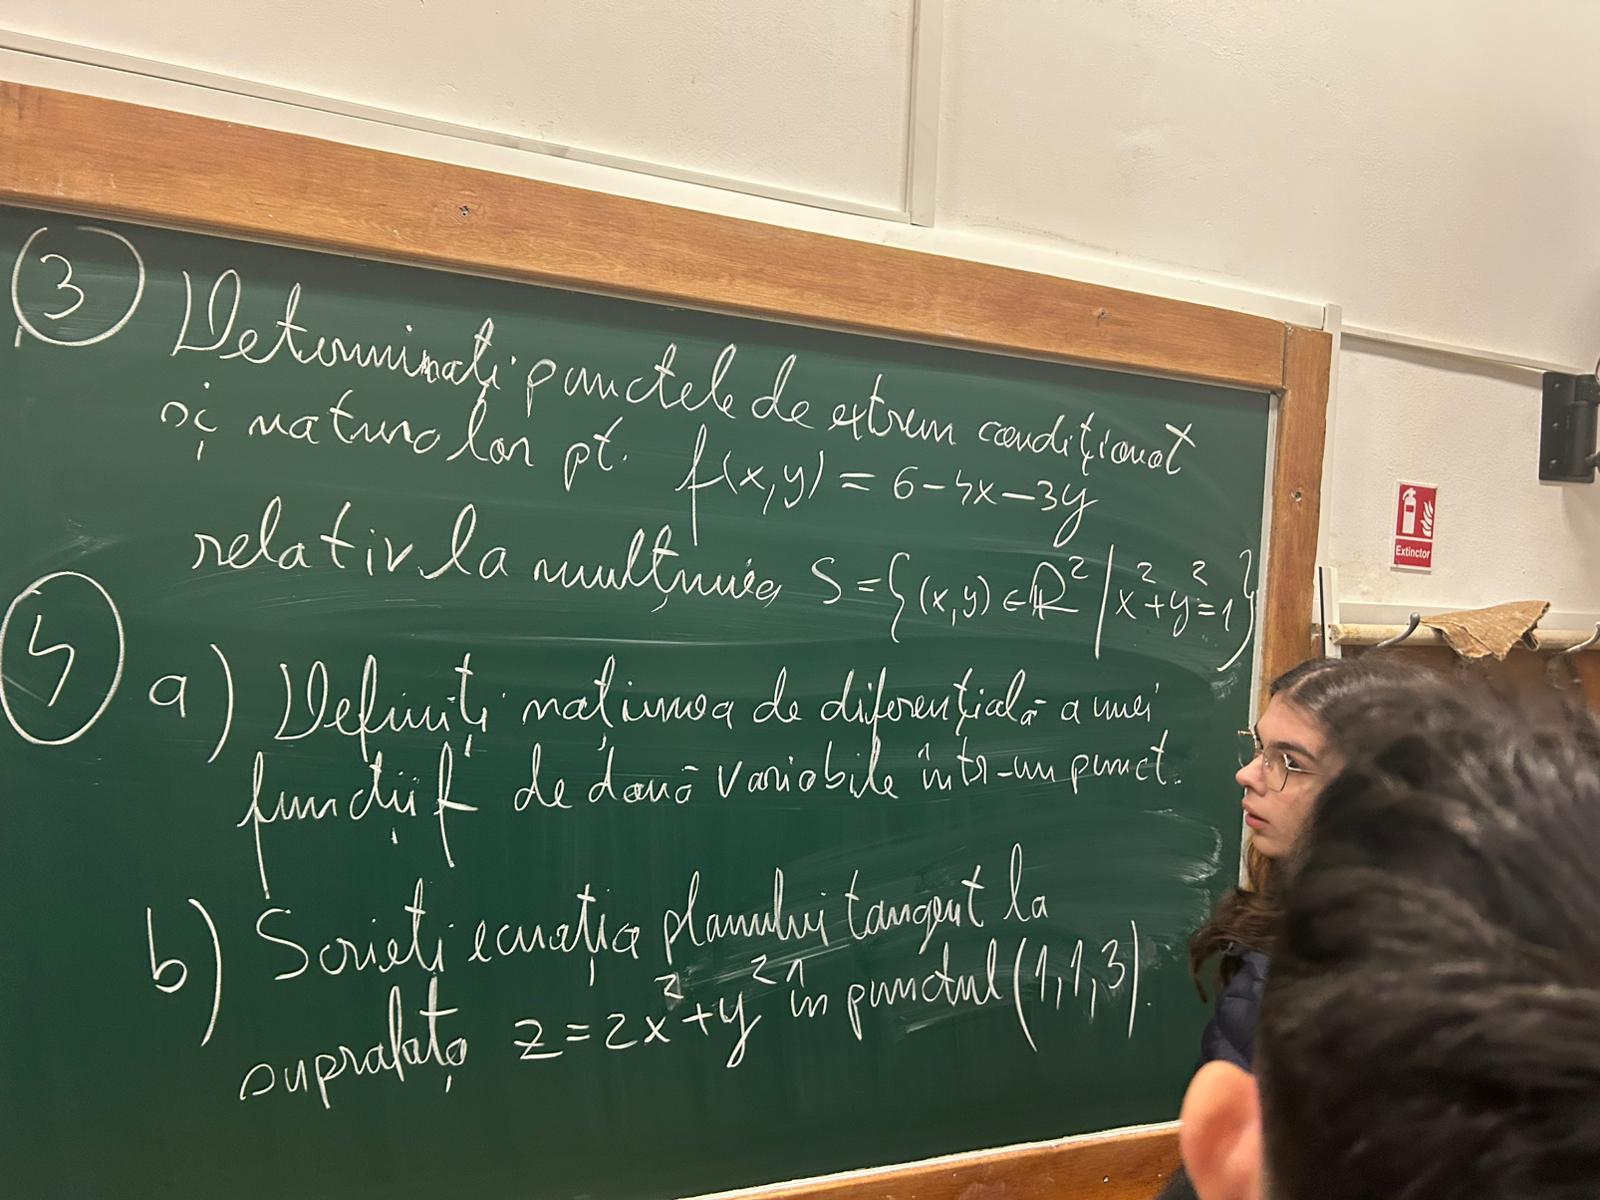 ③ Determinați punctele de extrem condiționat
și natura lor pt. f(x,y) = 6-4x-3y
relativ la mulțimea S = {(x,y) ∈ ℝ² | x²+y²=1}
④ a) Definiți noțiunea de diferențială a unei
funcții f de două variabile într-un punct.
b) Scrieți ecuația planului tangent la
suprafața z = 2x²+y² în punctul (1,1,3).
Extinctor